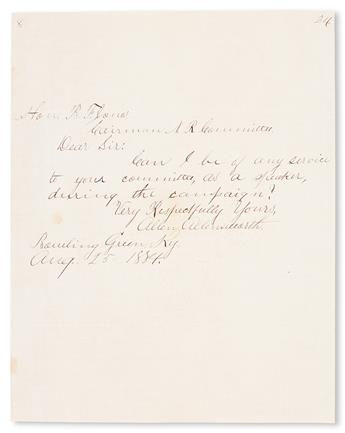 24
Hon. B. F. Jones
Cairman N R Committee
Dear Sir:
Can I be of any service
to your committee, as a speaker,
during the campaign?
Very Respectfully Yours,
Allen Allensworth.
Bowling Green, Ky.
Aug. 25 1884.